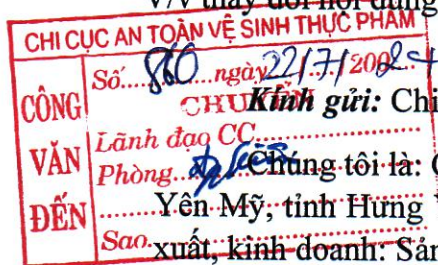 V/v thay đổi nội dung
CHI CỤC AN TOÀN VỆ SINH THỰC PHẨM
CÔNG VĂN ĐẾN
Số: 860 ngày 22/7/2024
CHUYỂN
Kính gửi: Chi
Lãnh đạo CC
Phòng
Chúng tôi là: C
Yên Mỹ, tỉnh Hưng
Sao
xuất, kinh doanh: Sản